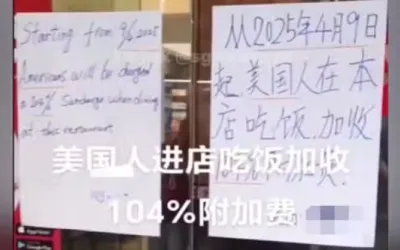 Starting from
Americans will be charged
a 104% Surcharge when dining
at this restaurant.
从2025年4月9日
起,美国人在本
店吃饭,加收
美国人进店吃饭加收
104%附加费